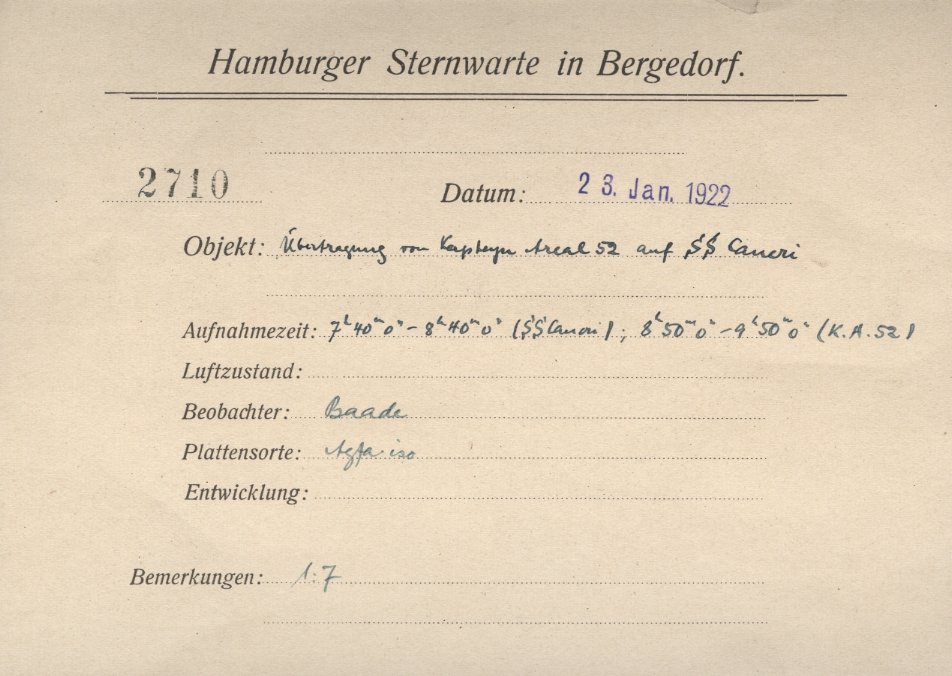 Hamburger Sternwarte in Bergedorf.
2710 Datum: 23. Jan. 1922
Objekt: Übertragung von Kapteyn Areal 52 auf SS Cancri
Aufnahmezeit: 7ʰ40ᵐ0ˢ – 8ʰ40ᵐ0ˢ (SS Cancri); 8ʰ50ᵐ0ˢ – 9ʰ50ᵐ0ˢ (K.A. 52)
Luftzustand:
Beobachter: Baade
Plattensorte: Agfa iso
Entwicklung:
Bemerkungen: 1:7